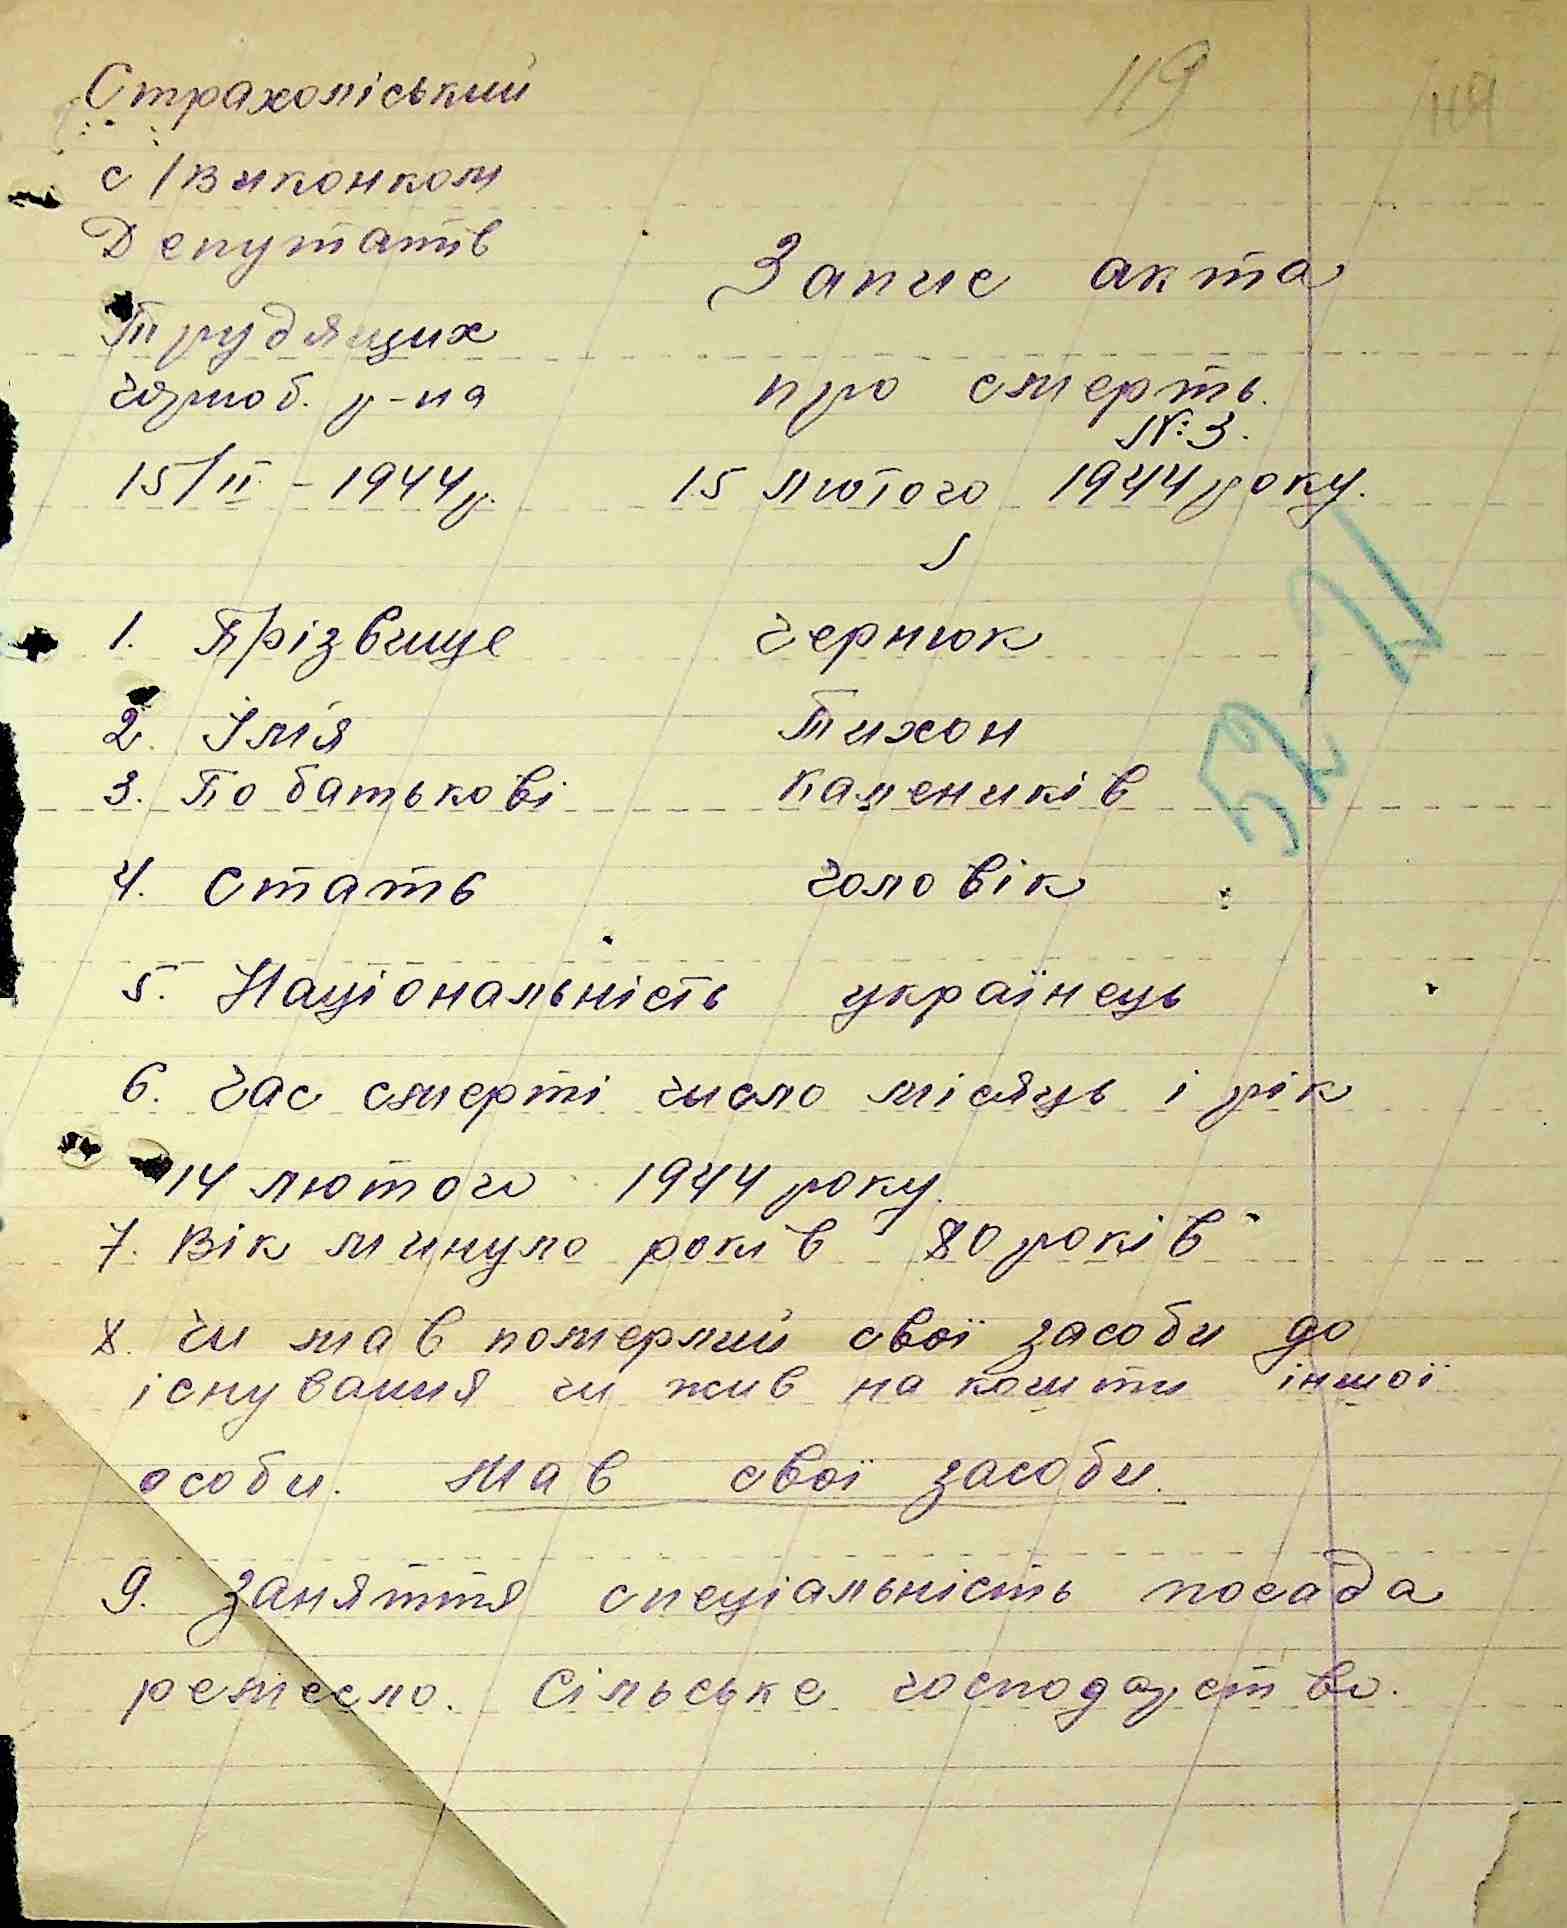 119
119
Страхоліський
с/виконком
Депутатів
Трудящих
Чорноб. р-на
15/II - 1944 р.
Запис акта
про смерть.
№ 3.
15 лютого 1944 року.
1. Прізвище Чернюк
2. Імія Тихон
3. По батькові Каленików
4. Стать чоловік
5. Національність українець
6. Час смерті число місяць і рік
14 лютого 1944 року.
7. Вік минуло років 80 років
8. Чи мав померлий свої засоби до
існування чи жив на кошти іншої
особи. Мав свої засоби.
9. Заняття спеціальність посада
ремесло. Сільське господарство.